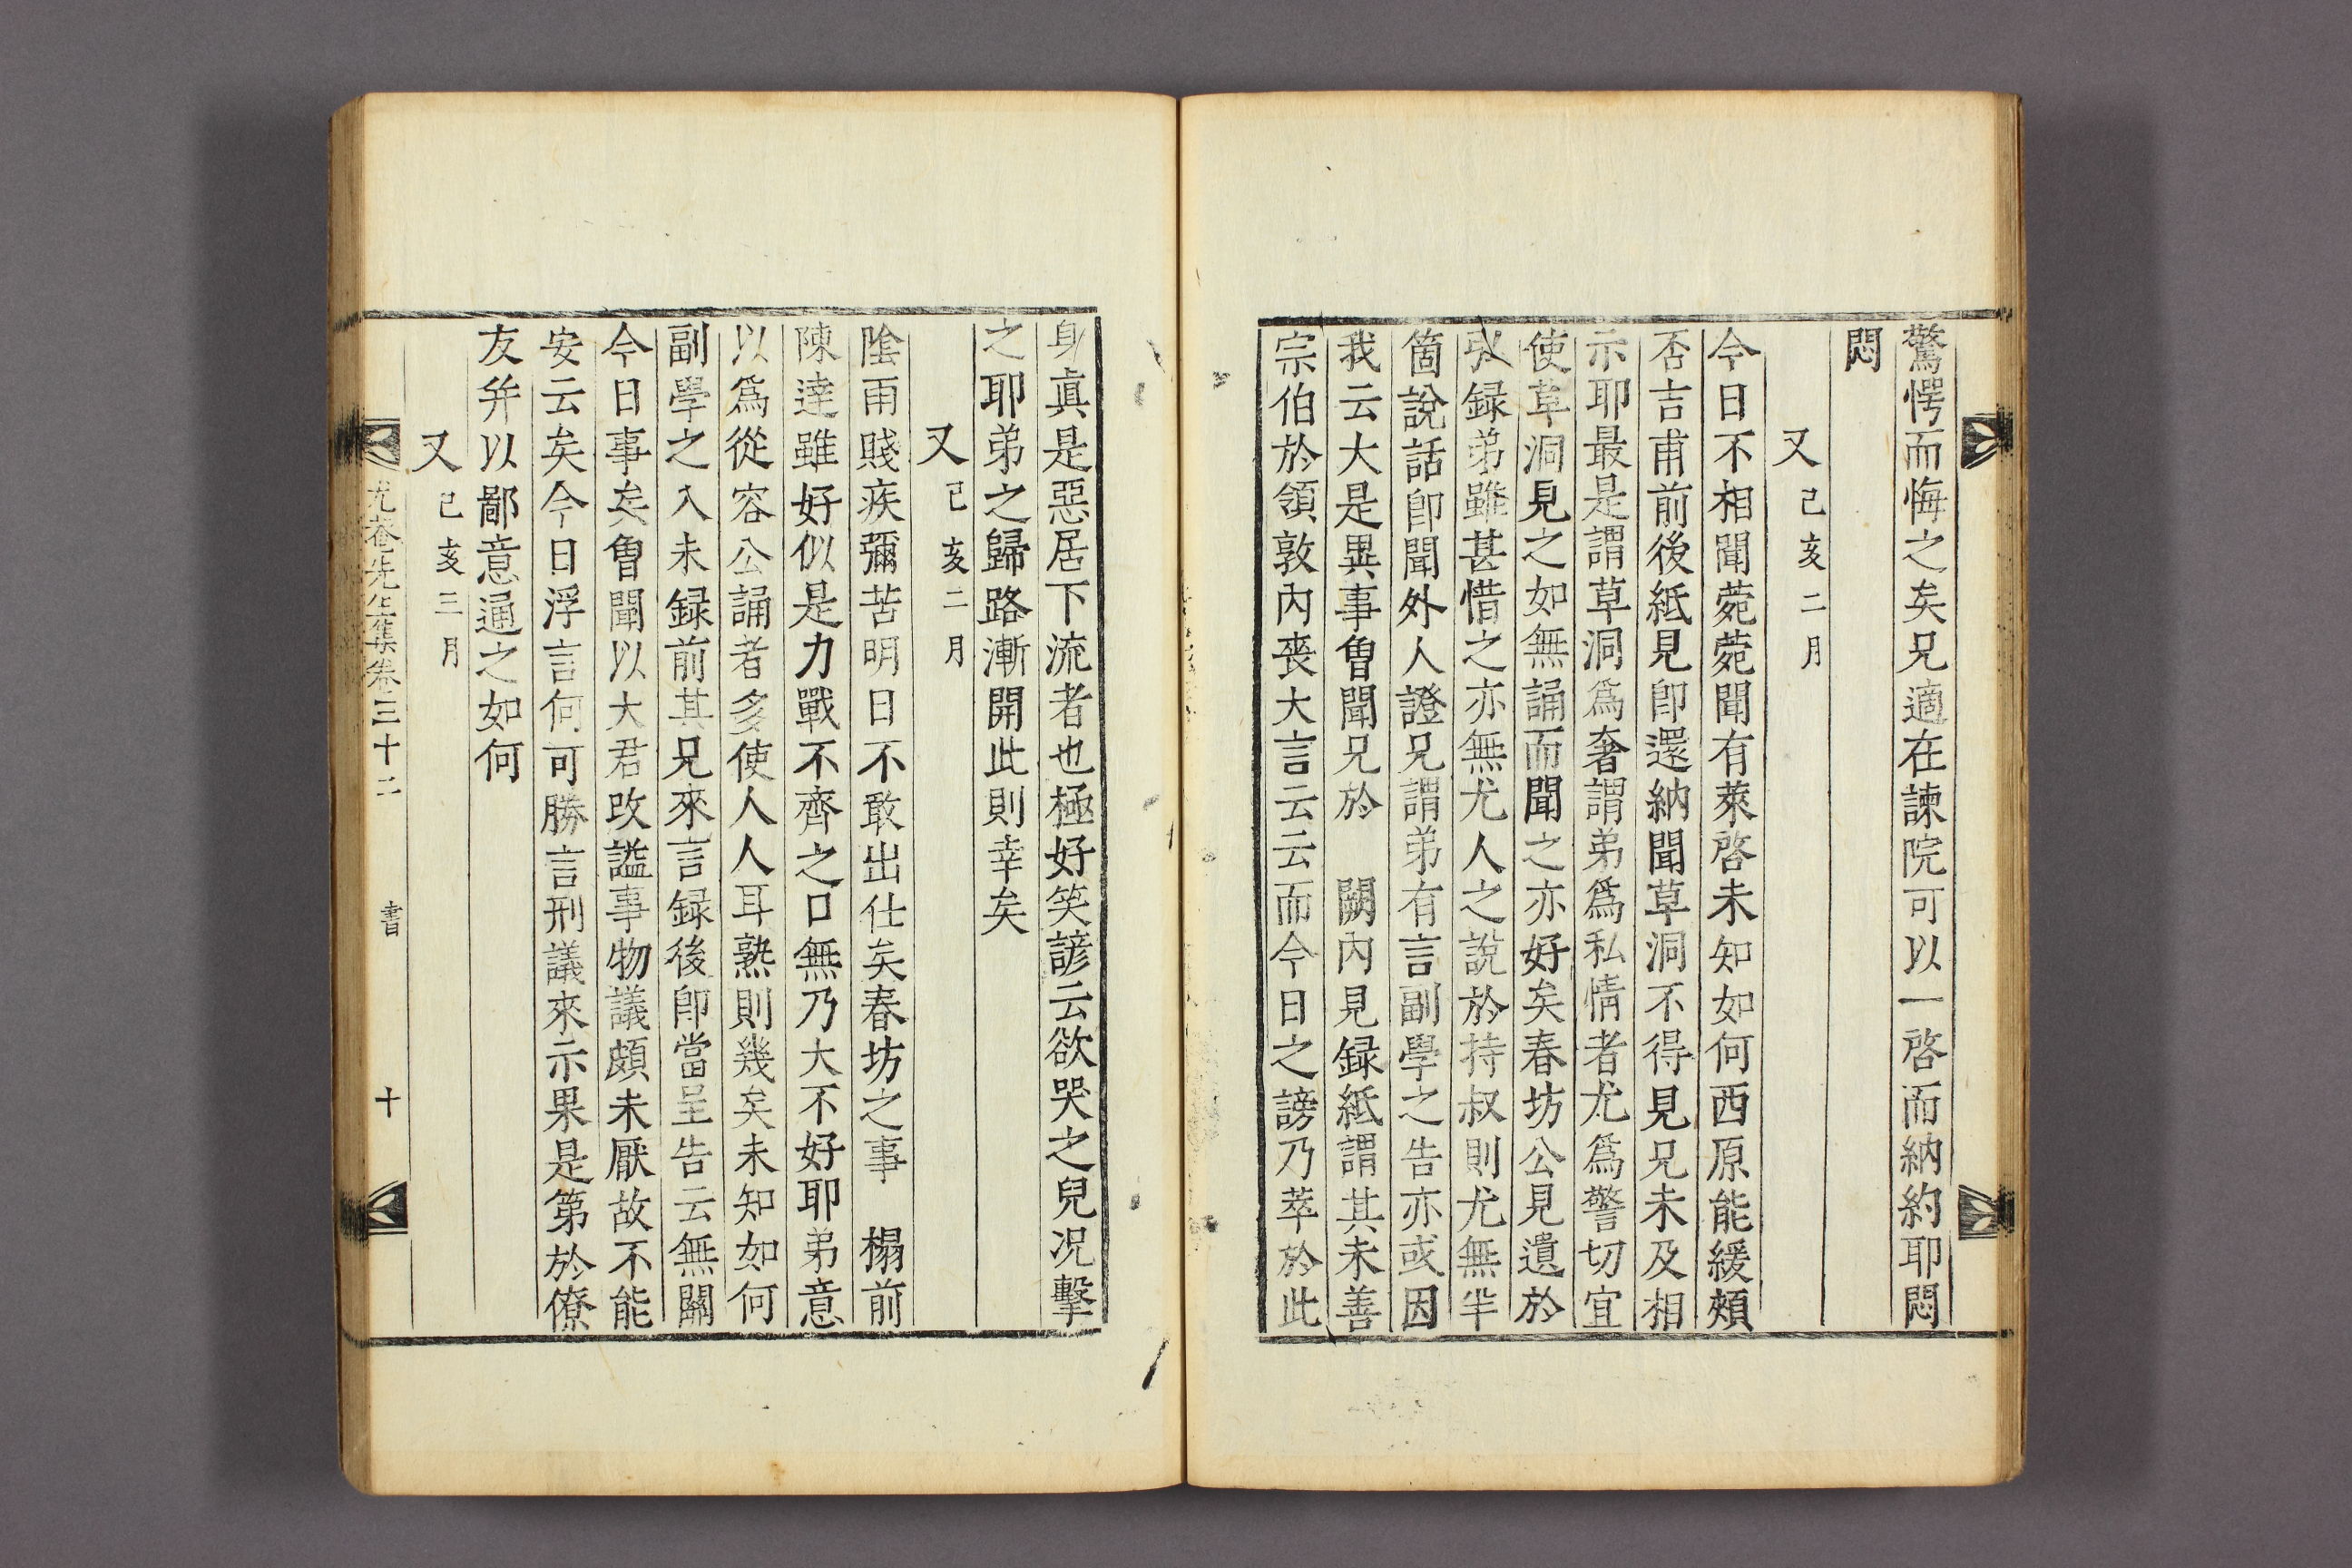 驚愕而悔之矣兄適在諫院可以一啓而納約耶悶
悶
又己亥二月
今日不相聞菀菀聞有萊啓未知如何西原能緩頰
否吉甫前後紙見卽還納聞草洞不得見兄未及相
示耶最是謂草洞爲奢謂弟爲私情者尤爲警切宜
使草洞見之如無誦而聞之亦好矣春坊公見遺於
弘録弟雖甚惜之亦無尤人之說於持叔則尤無半
箇說話卽聞外人證兄謂弟有言副學之告亦或因
我云大是異事曾聞兄於 闕內見録紙謂其未善
宗伯於領敦內喪大言云云而今日之謗乃萃於此
身眞是惡居下流者也極好笑諺云欲哭之兒况擊
之耶弟之歸路漸開此則幸矣
又己亥二月
陰雨賤疾彌苦明日不敢出仕矣春坊之事 榻前
陳達雖好似是力戰不齊之口無乃大不好耶弟意
以爲從容公誦者多使人人耳熟則幾矣未知如何
副學之入未録前其兄來言録後卽當呈告云無關
今日事矣曾聞以大君改謚事物議頗未厭故不能
安云矣今日浮言何可勝言刑議來示果是第於僚
友幷以鄙意通之如何
又己亥三月
尤菴先生集卷三十二 書 十